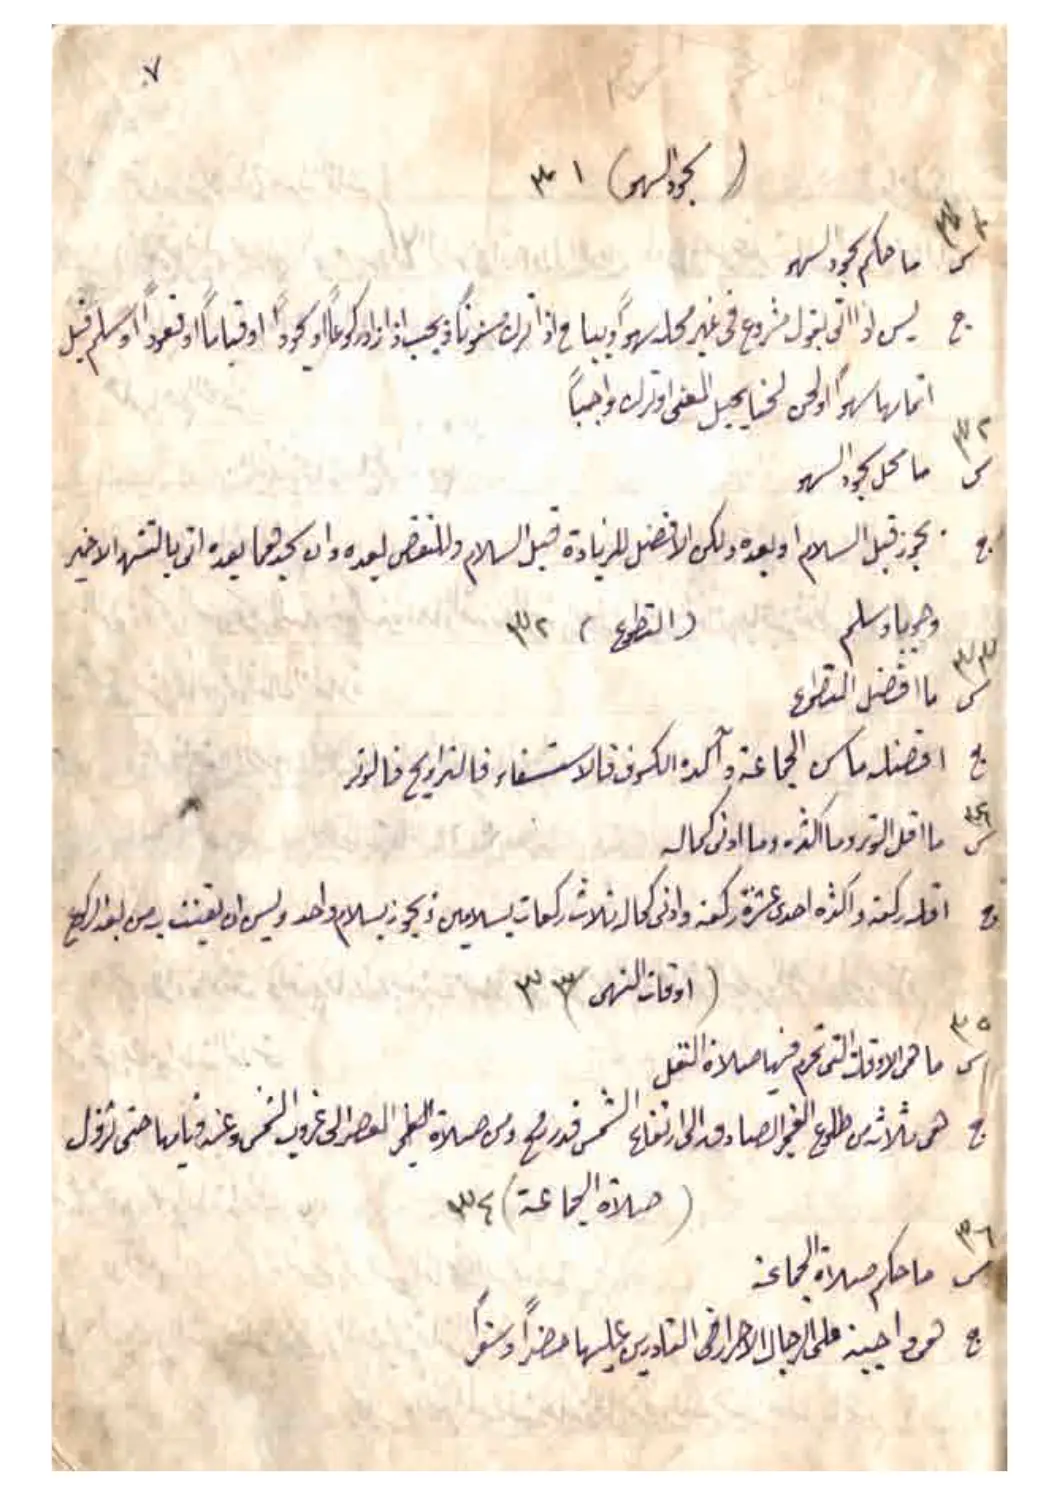 ٧
(سجود السهو) ٣١
س ٣١ ما حكم سجود السهو
ج يسن اذا اتى بقول مشروع في غير محله سهواً ويباح اذا ترك مسنوناً ويجب اذا زاد ركوعاً او سجوداً او قياماً او قعوداً او سلم قبل
اتمامها سهواً او لحن لحنا يحيل المعنى او ترك واجباً
س ٣٢ ما محل سجود السهو
ج يجوز قبل السلام او بعده ولكن الافضل للزيادة قبل السلام وللنقص بعده وان سجدهما بعده اتى بالتشهد الاخير
وجوبا وسلم (التطوع) ٣٢
س ٣٣ ما افضل التطوع
ج افضله ما سن الجماعة وآكده الكسوف فالاستسقاء فالتراويح فالوتر
س ٣٤ ما اقل الوتر وما اكثره وما ادنى كماله
ج اقله ركعة واكثره احدى عشرة ركعة وادنى كماله ثلاث ركعات بسلامين ويجوز بسلام واحد ويسن ان يقنت به من بعد الركوع
(اوقات النهى ٣٣
س ٣٥ ما هى الاوقات التى تحرم فيها صلاة النفل
ج هى ثلاثة من طلوع الفجر الصادق الى ارتفاع الشمس قدر رمح ومن صلاة العصر الى غروب الشمس وعند قيامها حتى تزول
(صلاة الجماعة) ٣٤
س ٣٦ ما حكم صلاة الجماعة
ج هى واجبة على الرجال الاحرار القادرين عليها حضراً وسفراً